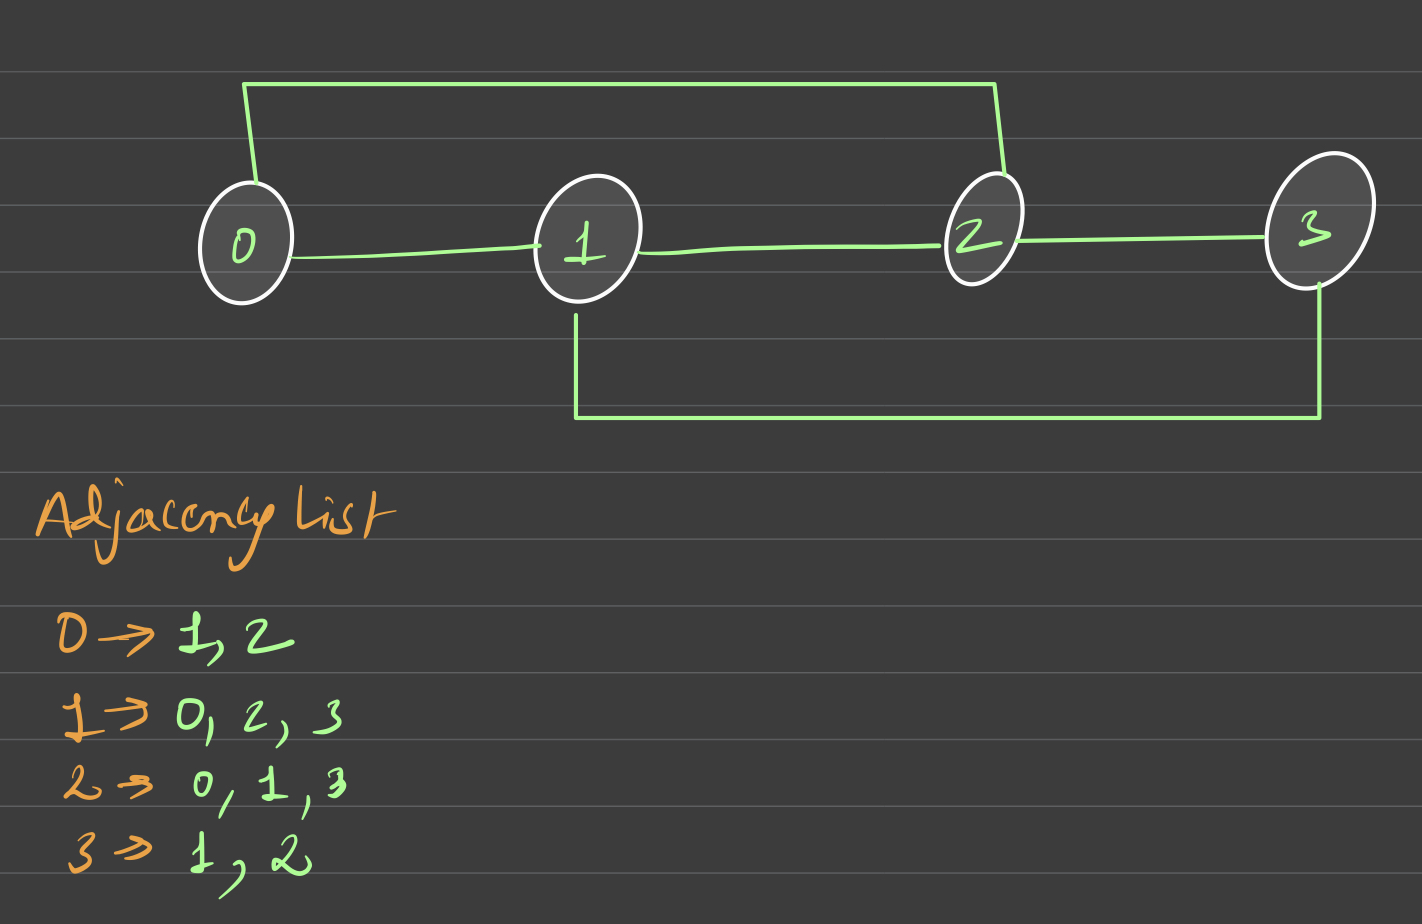 0 1 2 3
Adjacency List
0 → 1, 2
1 → 0, 2, 3
2 → 0, 1, 3
3 → 1, 2